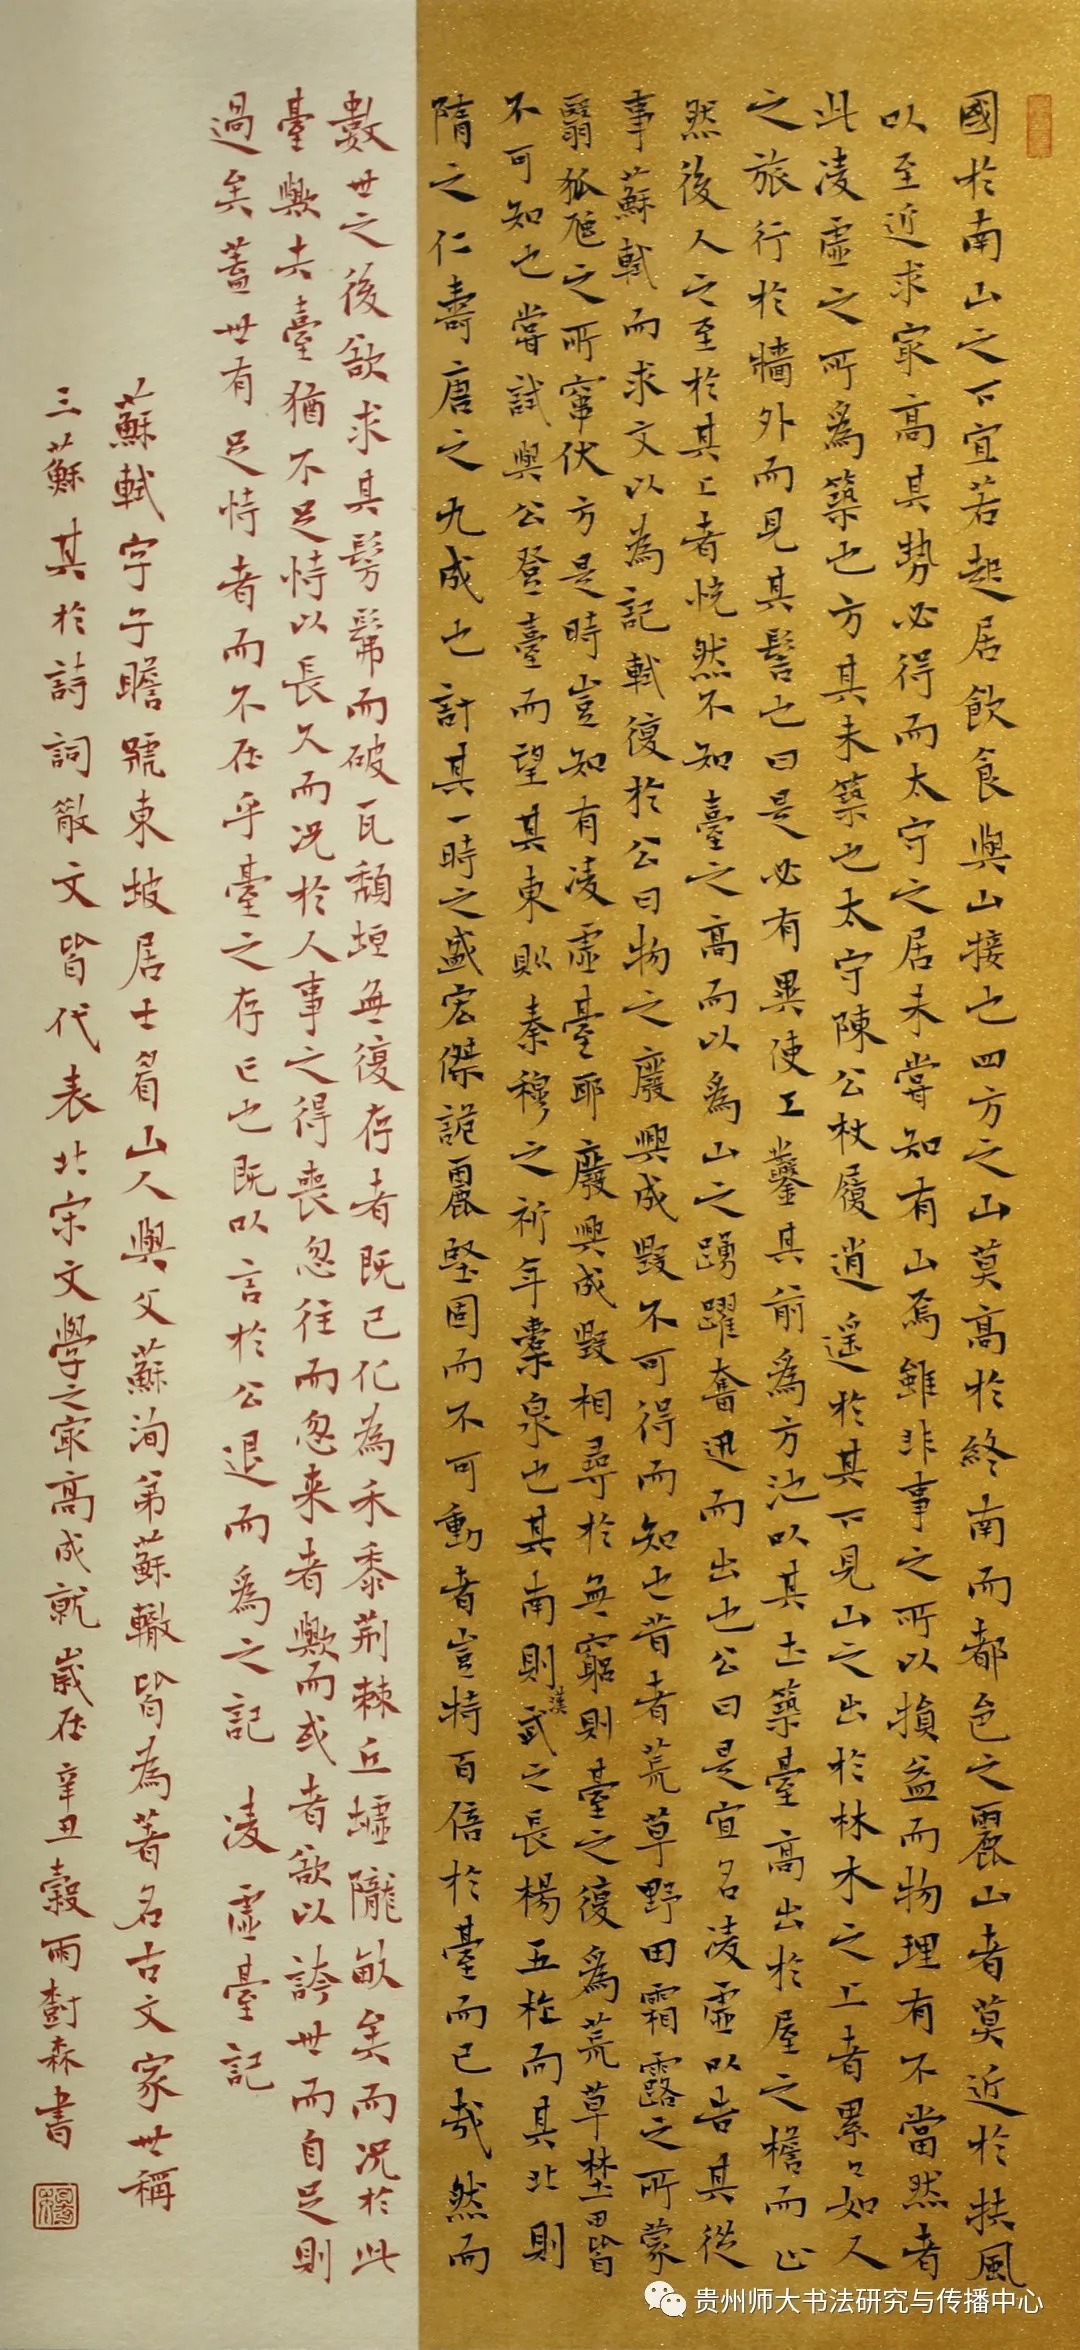 國於南山之下宜若起居飲食與山接也四方之山莫高於終南而都邑之麗山者莫近於扶風
以至近求冣高其勢必得而太守之居未嘗知有山焉雖非事之所以損益而物理有不當然者
此凌虛之所為築也方其未築也太守陳公杖履逍遙於其下見山之出於林木之上者累々如人
之旅行於牆外而見其髻也曰是必有異使工鑿其前為方池以其土築臺高出於屋之檐而止
然後人之至於其上者恍然不知臺之高而以為山之踴躍奮迅而出也公曰是宜名凌虛以告其從
事蘇軾而求文以為記軾復於公曰物之廢興成毀不可得而知也昔者荒草野田霜露之所蒙
翳狐虺之所竄伏方是時豈知有凌虛臺耶廢興成毀相尋於無窮則臺之復為荒草埜田皆
不可知也嘗試與公登臺而望其東則秦穆之祈年橐泉也其南則漢武之長楊五柞而其北則
隋之仁壽唐之九成也計其一時之盛宏傑詭麗堅固而不可動者豈特百倍於臺而已哉然而
數世之後欲求其髣髴而破瓦頹垣無復存者既已化為禾黍荊棘丘墟隴畝矣而況於此
臺歟夫臺猶不足恃以長久而況於人事之得喪忽往而忽来者歟而或者欲以誇世而自足則
過矣蓋世有足恃者而不在乎臺之存亡也既以言於公退而為之記 凌虛臺記
蘇軾字子瞻號東坡居士眉山人與父蘇洵弟蘇轍皆為著名古文家世稱
三蘇其於詩詞散文皆代表北宋文學之冣高成就歲在辛丑穀雨樹森書
贵州师大书法研究与传播中心